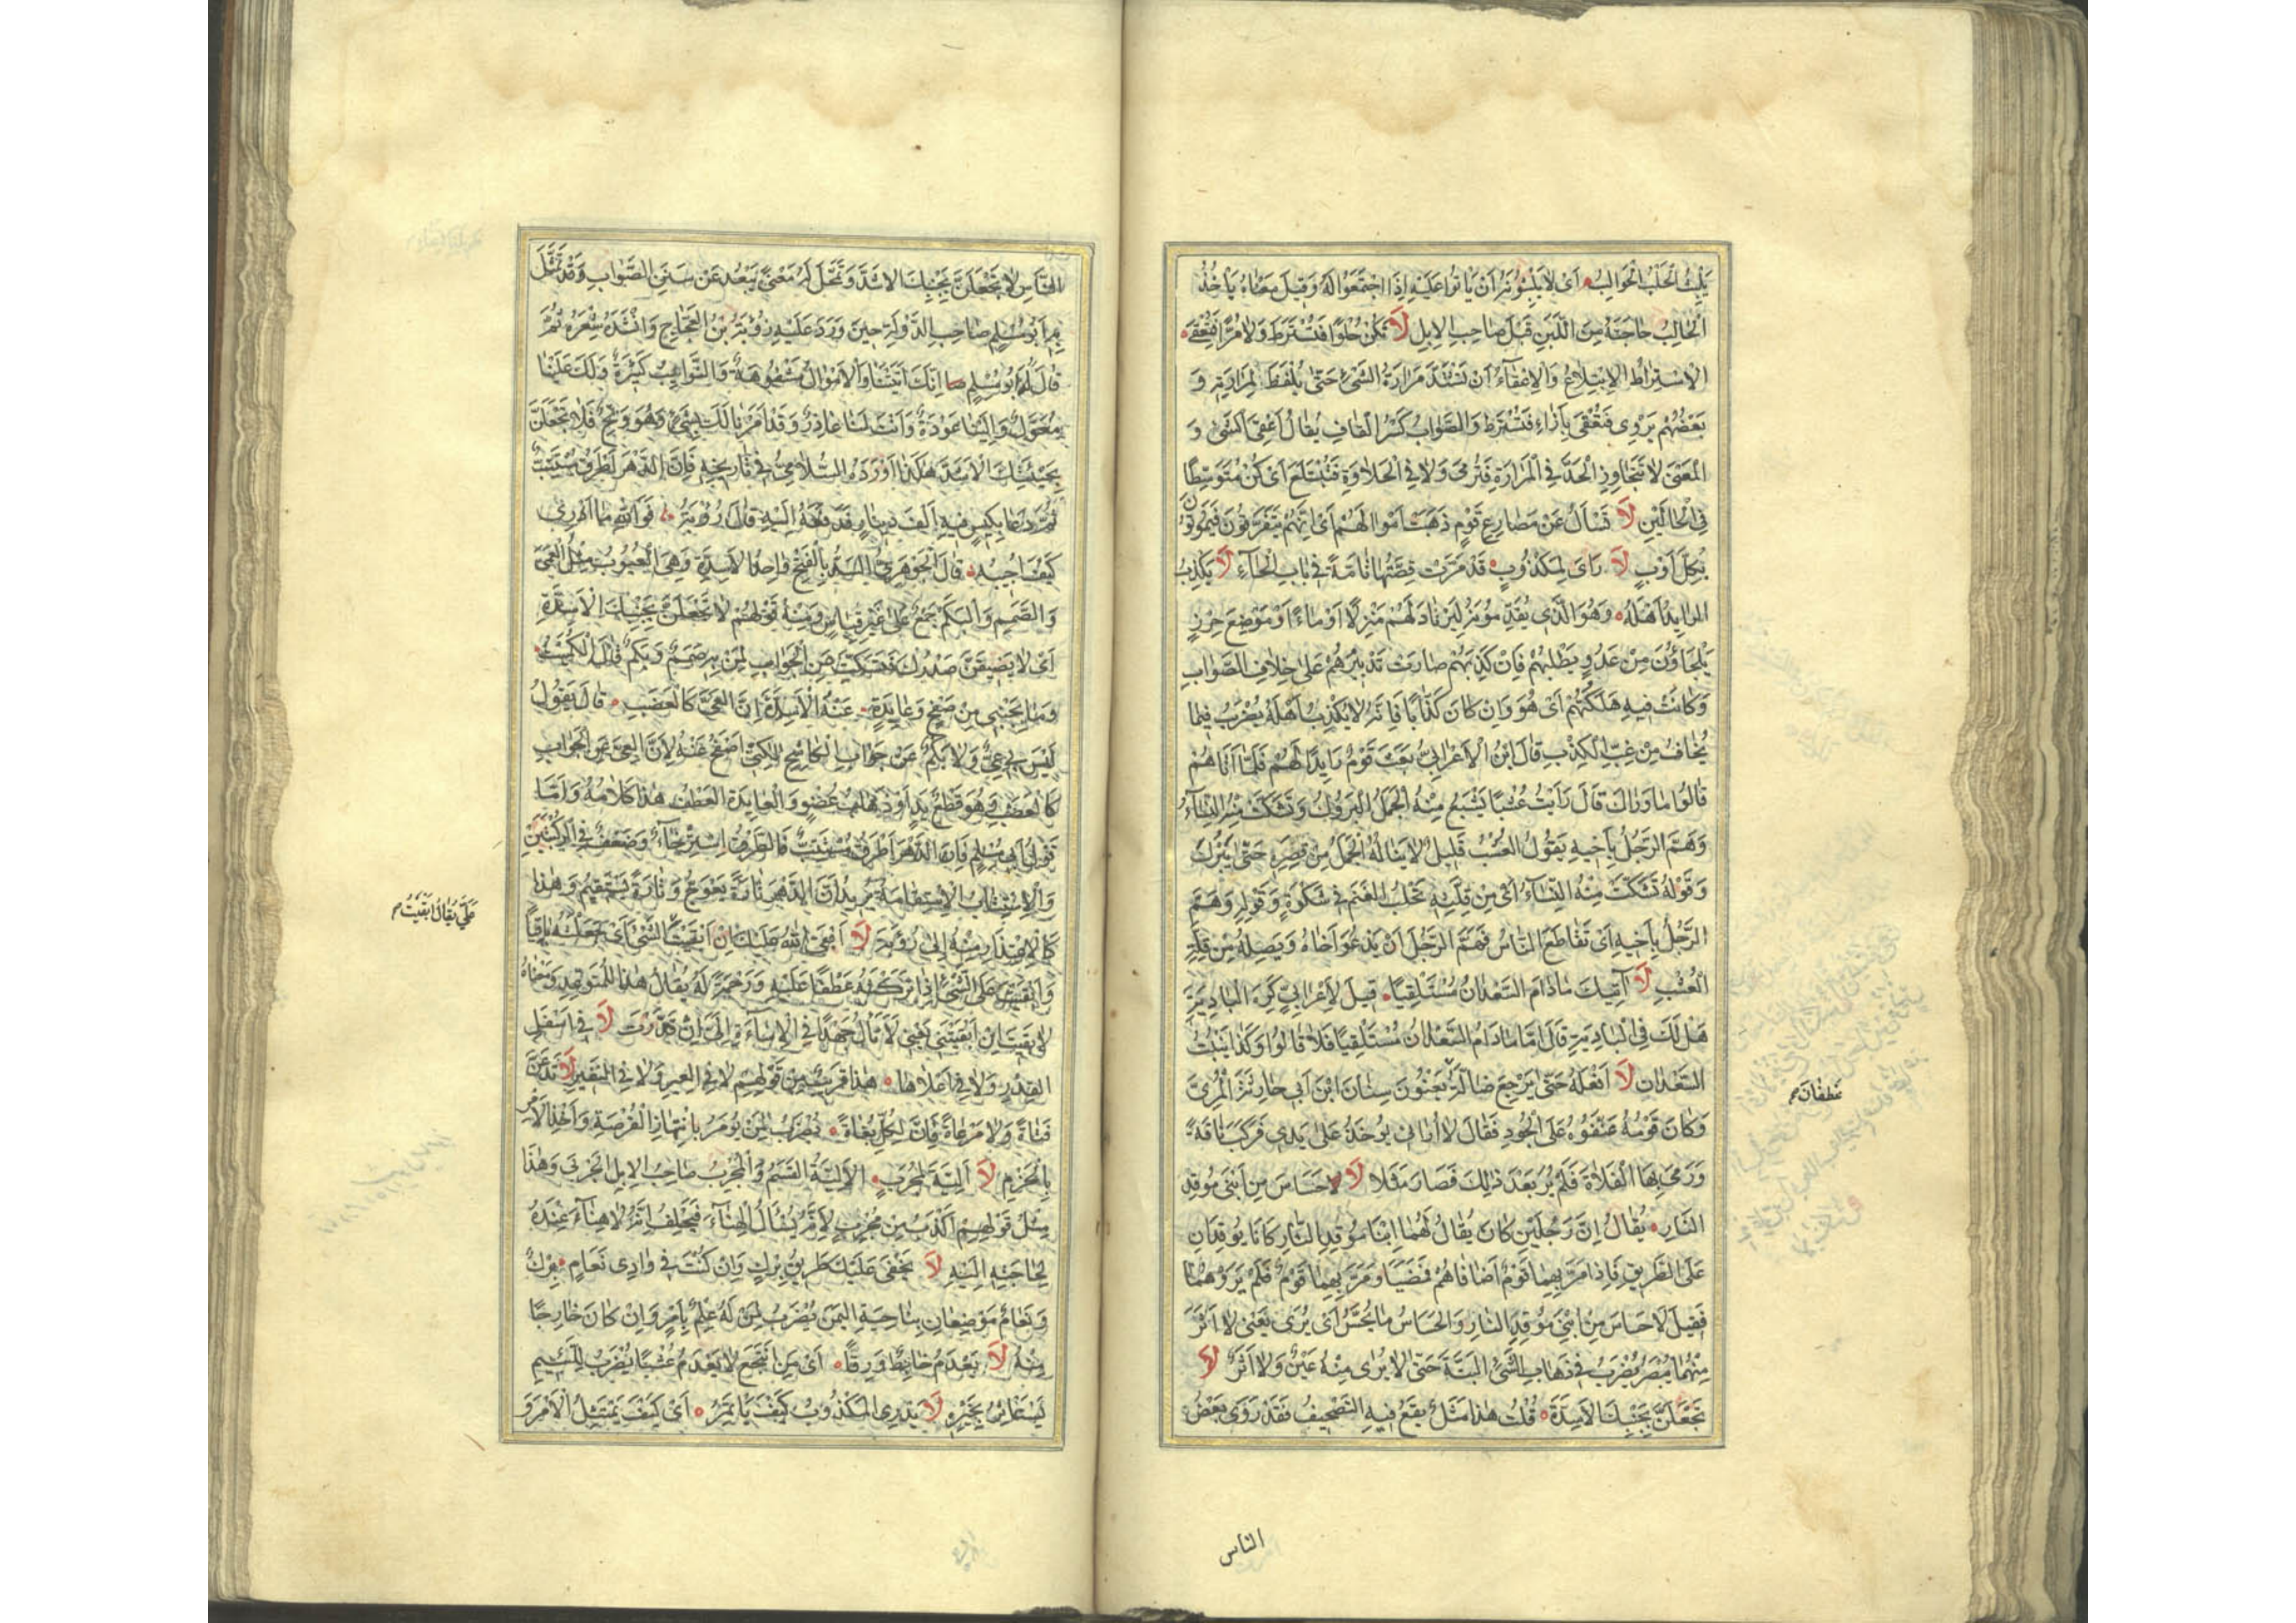 يَلْبَثُ الْحَلَبُ الْحَوَالِبُ اَىْ لَا يَلْبَثُونَ اَنْ يَاْتُوا عَلَيْهِ اِذَا اجْتَمَعُوا لَهُ وَقِيلَ مَعْنَاهُ يَاْخُذُ
الْحَالِبُ حَاجَتَهُ مِنَ اللَّبَنِ قَبْلَ صَاحِبِ الْاِبِلِ لَا تَكُنْ حُلْوًا فَتُسْتَرَطَ وَلَا مُرًّا فَتُعْقَى
الْاِسْتِرَاطُ الْاِبْتِلَاعُ وَالْاِعْقَاءُ اَنْ تَشْتَدَّ مَرَارَةُ الشَّىْءِ حَتَّى يُلْفَظَ لِمَرَارَتِهِ وَ
بَعْضُهُمْ يَرْوِى فَتُعْقَى بِاِزَاءِ فَتُسْتَرَطَ وَالصَّوَابُ كَسْرُ الْقَافِ يُقَالُ اَعْقَى الشَّىْءُ وَ
الْمَعْنَى لَا تَتَجَاوَزِ الْحَدَّ فِى الْمَرَارَةِ فَتُرْمَى وَلَا فِى الْحَلَاوَةِ فَتُبْتَلَعَ اَىْ كُنْ مُتَوَسِّطًا
فِى الْحَالَيْنِ لَا تَسْاَلْ عَنْ مَصَارِعِ قَوْمٍ ذَهَبَتْ اَمْوَالُهُمْ اَىْ اِنَّهُمْ يَتَفَرَّقُونَ فَيَمُوتُونَ
بِكُلِّ اَوْبٍ لَا رَاْىَ لِمَكْذُوبٍ قَدْ مَرَّتْ قِصَّتُهَا تَامَّةً فِى بَابِ الْحَاءِ لَا يَكْذِبُ
الرَّايِدُ اَهْلَهُ وَهُوَ الَّذِى يُقَدِّمُونَهُ لِيَرْتَادَ لَهُمْ مَنْزِلًا اَوْ مَاءً اَوْ مَوْضِعَ حِرْزٍ
يَلْجَاؤُنَ مِنْ عَدُوٍّ يَطْلُبُهُمْ فَاِنْ كَذَبَهُمْ صَارَتْ تَدْبِيرُهُمْ عَلَى خِلَافِ الصَّوَابِ
وَكَانَتْ فِيهِ هَلَكَتُهُمْ اَىْ هُوَ وَاِنْ كَانَ كَذَّابًا فَاِنَّهُ لَا يَكْذِبُ اَهْلَهُ يُضْرَبُ فِيمَا
يُخَافُ مِنْ غِبِّ الْكَذِبِ قَالَ ابْنُ الْاَعْرَابِىِّ بَعَثَ قَوْمٌ رَايِدًا لَهُمْ فَلَمَّا اَتَاهُمْ
قَالُوا مَا وَرَاكَ قَالَ رَاَيْتُ عُشْبًا يَشْبَعُ مِنْهُ الْجَمَلُ الْبَرُوكُ وَتَشَكَّتْ مِنْهُ النِّسَاءُ
وَهَمَّ الرَّجُلُ بِاَخِيهِ يَقُولُ الْعُشْبُ قَلِيلٌ لَا يَنَالُهُ الْجَمَلُ مِنْ قِصَرِهِ حَتَّى يَبْرُكَ
وَقَوْلُهُ تَشَكَّتْ مِنْهُ النِّسَاءُ اَىْ مِنْ قِلَّتِهِ تَحْلُبُ الْغَنَمَ فِى شَكْوَةٍ وَقَوْلُهُ وَهَمَّ
الرَّجُلُ بِاَخِيهِ اَىْ تَقَاطَعَ النَّاسُ فَهَمَّ الرَّجُلُ اَنْ يَدْعُوَ اَخَاهُ وَيَصِلَهُ مِنْ قِلَّةِ
الْعُشْبِ لَا آتِيكَ مَا دَامَ السَّعْدَانُ مُسْتَلْقِيًا قِيلَ لِاَعْرَابِىٍّ كَرِهَ الْبَادِيَةَ
هَلْ لَكَ فِى الْبَادِيَةِ قَالَ اَمَّا مَا دَامَ السَّعْدَانُ مُسْتَلْقِيًا فَلَا قَالُوا وَكَذَا يَنْبُتُ
السَّعْدَانُ لَا اَفْعَلُهُ حَتَّى يَرْجِعَ ضَالَّةُ يَعْنُونَ سِنَانَ ابْنَ اَبِى حَارِثَةَ الْمُرِّىَّ
وَكَانَ قَوْمُهُ عَنَّفُوهُ عَلَى الْجُودِ فَقَالَ لَا اُرَانِى يُوخَذُ عَلَى يَدِى فَرَكِبَ نَاقَةً
وَرَمَى بِهَا الْفَلَاةَ فَلَمْ يُرَ بَعْدَ ذٰلِكَ فَصَارَ مَثَلًا لَا حَسَاسَ مِنِ ابْنَىْ مُوقِدِ
النَّارِ يُقَالُ اِنَّ رَجُلَيْنِ كَانَ يُقَالُ لَهُمَا ابْنَا مُوقِدِ النَّارِ كَانَا يُوقِدَانِ
عَلَى الطَّرِيقِ فَاِذَا مَرَّ بِهِمَا قَوْمٌ اَضَافَاهُمْ فَمَضَيَا وَمَرَّ بِهِمَا قَوْمٌ فَلَمْ يَرَوْهُمَا
فَقِيلَ لَا حَسَاسَ مِنِ ابْنَىْ مُوقِدِ النَّارِ وَالْحَسَاسُ مَا يُحَسُّ اَىْ يُرَى يَعْنِى لَا اَثَرَ
مِنْهُمَا يُبْصَرُ يُضْرَبُ فِى ذَهَابِ الشَّىْءِ الْبَتَّةَ حَتَّى لَا يُرَى مِنْهُ عَيْنٌ وَلَا اَثَرٌ لَا
تَجْعَلَنَّ بِجَنْبِكَ الْاَسِدَّةَ قُلْتُ هٰذَا مَثَلٌ يَقَعُ فِيهِ التَّصْحِيفُ فَقَدْ رَوَى بَعْضُ
غَطَفَان
الناس
النَّاسِ لَا تَجْعَلَنَّ بِجَنْبِكَ الْاَشَدَّ وَتَمَحَّلَ لَهُ مَعْنًى يَبْعُدُ عَنْ سَنَنِ الصَّوَابِ وَقَدْ تَمَثَّلَ
بِهِ اَبُو مُسْلِمٍ صَاحِبُ الدَّوْلَةِ حِينَ وَرَدَ عَلَيْهِ رُؤْبَةُ بْنُ الْعَجَّاجِ وَاَنْشَدَهُ شِعْرَهُ ثُمَّ
قَالَ لَهُ اَبُو مُسْلِمٍ اِنَّكَ اَتَيْتَنَا وَالْاَمْوَالُ مَشْفُوهَةٌ وَالنَّوَايِبُ كَثِيرَةٌ وَلَكَ عَلَيْنَا
مُعَوَّلٌ وَاِلَيْنَا عَوْدَةٌ وَاَنْتَ لَنَا عَاذِرٌ وَقَدْ اَمَرْنَا لَكَ بِشَىْءٍ وَهُوَ وَتْحٌ فَلَا تَجْعَلَنَّ
بِجَنْبِكَ الْاَسِدَّةَ هٰكَذَا اَوْرَدَهُ السَّلَامِىُّ فِى تَارِيخِهِ فَاِنَّ الدَّهْرَ اَطْرَقُ مُسْتَتِبٌّ
ثُمَّ دَعَا بِكِيسٍ فِيهِ اَلْفُ دِينَارٍ فَدَفَعَهُ اِلَيْهِ قَالَ رُؤْبَةُ فَوَاللّٰهِ مَا اَدْرِى
كَيْفَ اُجِيبُهُ قَالَ الْجَوْهَرِىُّ السَّدُّ بِالْفَتْحِ وَاحِدُ الْاَسِدَّةِ وَهِىَ الْعُيُوبُ مِثْلُ الْعَمَى
وَالصَّمَمِ وَالْبَكَمِ جَمْعٌ عَلَى غَيْرِ قِيَاسٍ وَمِنْهُ قَوْلُهُمْ لَا تَجْعَلَنَّ بِجَنْبِكَ الْاَسِدَّةَ
اَىْ لَا يَضِيقَنَّ صَدْرُكَ فَتَسْكُتَ عَنِ الْجَوَابِ كَمَنْ بِهِ صَمَمٌ وَبَكَمٌ قَالَ الْكُمَيْتُ
وَمَا بِجَنْبِى مِنْ صَفْحٍ وَعَايِدَةٍ عِنْدَ الْاَسِدَّةِ اِنَّ الْعِىَّ كَالْعَضَبِ قَالَ يَقُولُ
لَيْسَ بِى عِىٌّ وَلَا بَكَمٌ عَنْ جَوَابِ الْكَاشِحِ لٰكِنِّى اَصْفَحُ عَنْهُ لِاَنَّ الْعِىَّ عَنِ الْجَوَابِ
كَالْعَضَبِ وَهُوَ قَطْعُ يَدٍ اَوْ ذَهَابُ عُضْوٍ وَالْعَايِدَةُ الْعَطْفُ هٰذَا كَلَامُهُ وَاَمَّا
قَوْلُ اَبِى مُسْلِمٍ فَاِنَّ الدَّهْرَ اَطْرَقُ مُسْتَتِبٌّ فَالطَّرَقُ اِسْتِرْخَاءٌ وَضَعْفٌ فِى الرُّكْبَتَيْنِ
وَالْاِسْتِتْبَابُ الْاِسْتِقَامَةُ يُرِيدُ اَنَّ الدَّهْرَ تَارَةً يَعْوَجُّ وَتَارَةً يَسْتَقِيمُ وَهٰذَا
كَالْاِعْتِذَارِ مِنْهُ اِلَى رُؤْبَةَ لَا اَبْقَى اللّٰهُ عَلَيْكَ اِنْ اَبْقَيْتَ الشَّىْءَ اَىْ جَعَلْتَهُ بَاقِيًا
وَاَبْقَيْتَ عَلَى الشَّىْءِ اِذَا تَرَكْتَهُ عَطْفًا عَلَيْهِ وَرَحْمَةً لَهُ يُقَالُ هٰذَا لِلْمُتَوَعِّدِ وَمَعْنَاهُ
لَا بَقِيتَ اِنْ اَبْقَيْتَنِى يَعْنِى لَا تَاْلُ جَهْدًا فِى الْاِسَاءَةِ اِلَىَّ اِنْ قَدَرْتَ لَا فِى اَسْفَلِ
الْقِدْرِ وَلَا فِى اَعْلَاهَا هٰذَا قَرِيبٌ مِنْ قَوْلِهِمْ لَا فِى الْعِيرِ وَلَا فِى النَّفِيرِ لَا تَدَعَنَّ
فَتَاةً وَلَا مَرْعَاةً فَاِنَّ لِكُلٍّ بُغَاةً يُضْرَبُ لِمَنْ يُومَرُ بِانْتِهَازِ الْفُرْصَةِ وَاَخْذِ الْاَمْرِ
بِالْحَزْمِ لَا اَلِيَّةَ لِمُجْرِبٍ الْاَلِيَّةُ الْقَسَمُ وَالْمُجْرِبُ صَاحِبُ الْاِبِلِ الْجَرْبَى وَهٰذَا
مِثْلُ قَوْلِهِمْ اَكْذَبُ مِنْ مُجْرِبٍ لِاَنَّهُ يُسْاَلُ الْهِنَاءَ فَيَحْلِفُ اَنَّهُ لَا هِنَاءَ عِنْدَهُ
لِحَاجَتِهِ اِلَيْهِ لَا يَخْفَى عَلَيْكَ طَرِيقُ بِرْكٍ وَاِنْ كُنْتَ فِى وَادِى نَعَامٍ بِرْكٌ
وَنَعَامٌ مَوْضِعَانِ بِنَاحِيَةِ الْيَمَنِ يُضْرَبُ لِمَنْ لَهُ عِلْمٌ بِاَمْرٍ وَاِنْ كَانَ خَارِجًا
مِنْهُ لَا يَعْدَمُ خَابِطٌ وَرَقًا اَىْ مَنِ انْتَجَعَ لَا يَعْدَمُ عُشْبًا يُضْرَبُ لِلَّئِيمِ
يُسْتَعَانُ بِخَيْرِهِ لَا يَدْرِى الْمَكْذُوبُ كَيْفَ يَاْتَمِرُ اَىْ كَيْفَ يَمْتَثِلُ الْاَمْرَ وَ
عَلَىَّ يُقَالُ اَبْقَيْتُ